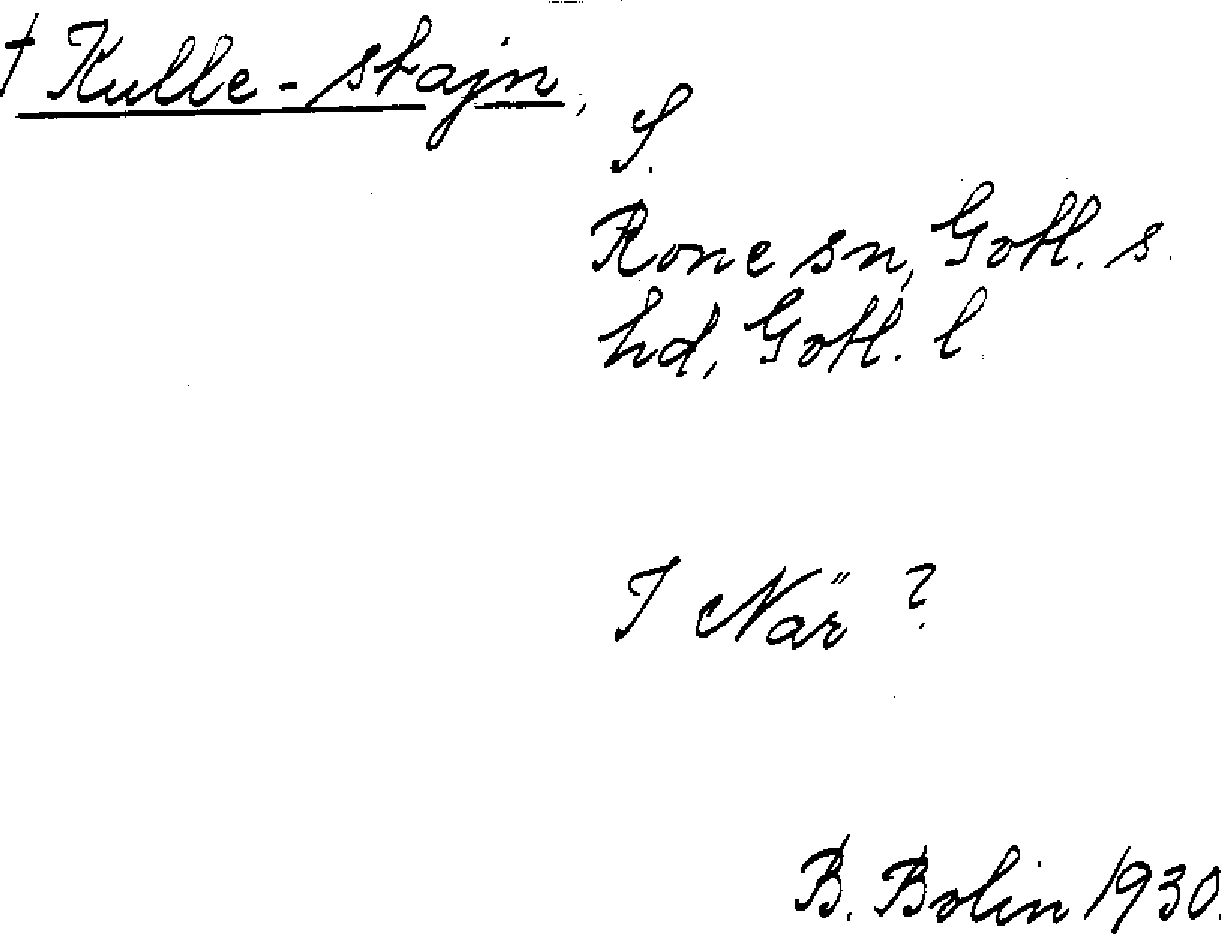 † Kulle-stajn,
S.
Rone sn, Gotl. s.
hd, Gotl. l.
I När ?
B. Bolin 1930.